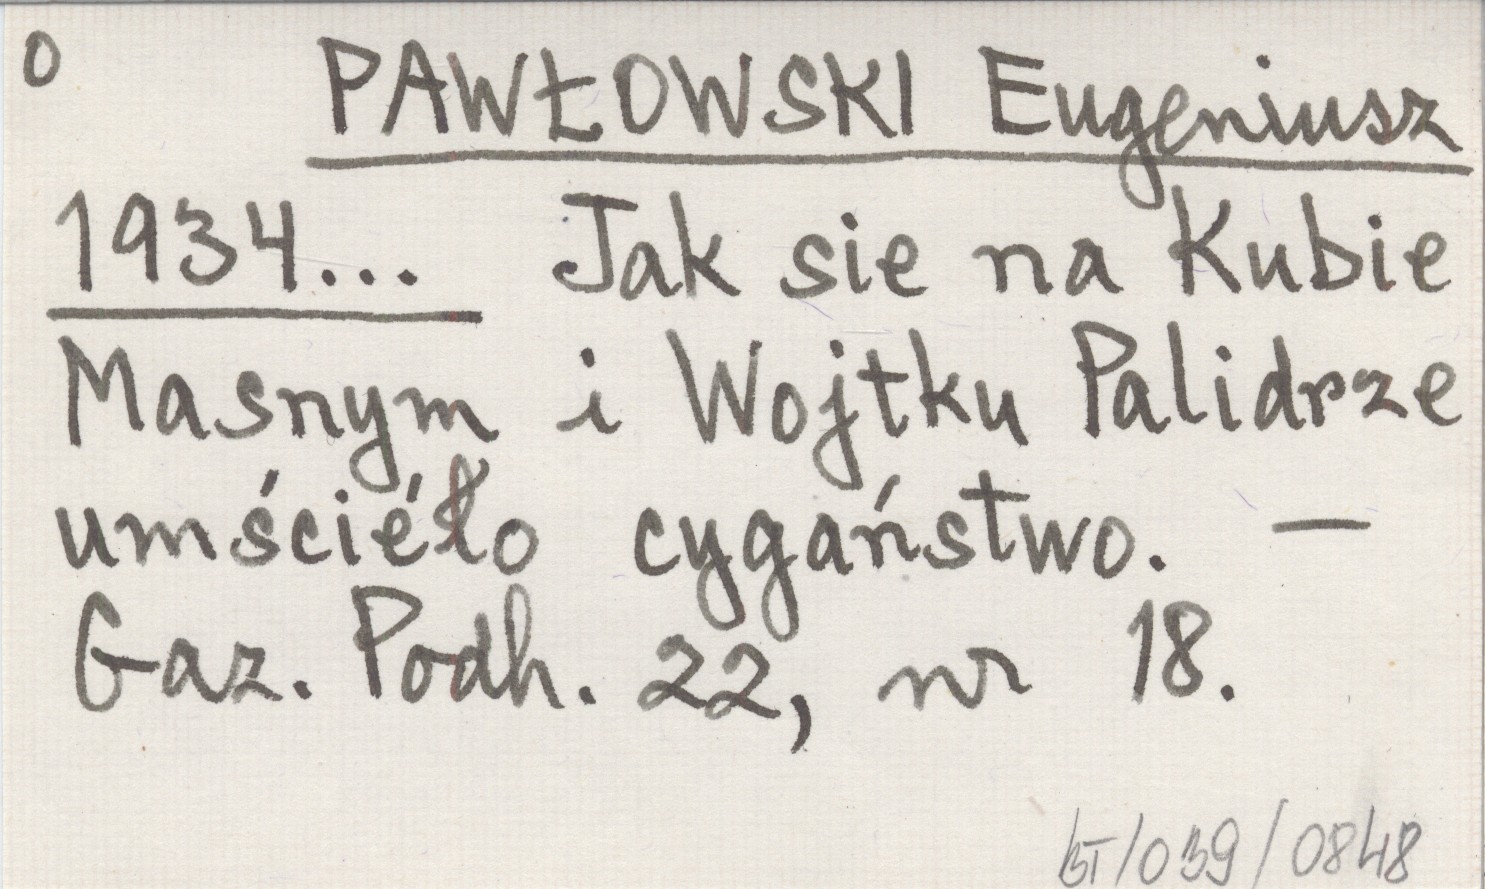 0 PAWŁOWSKI Eugeniusz
1934... Jak sie na Kubie
Masnym i Wojtku Palidrze
umściéło cygaństwo. —
Gaz. Podh. 22, nr 18.
BT/039/0848